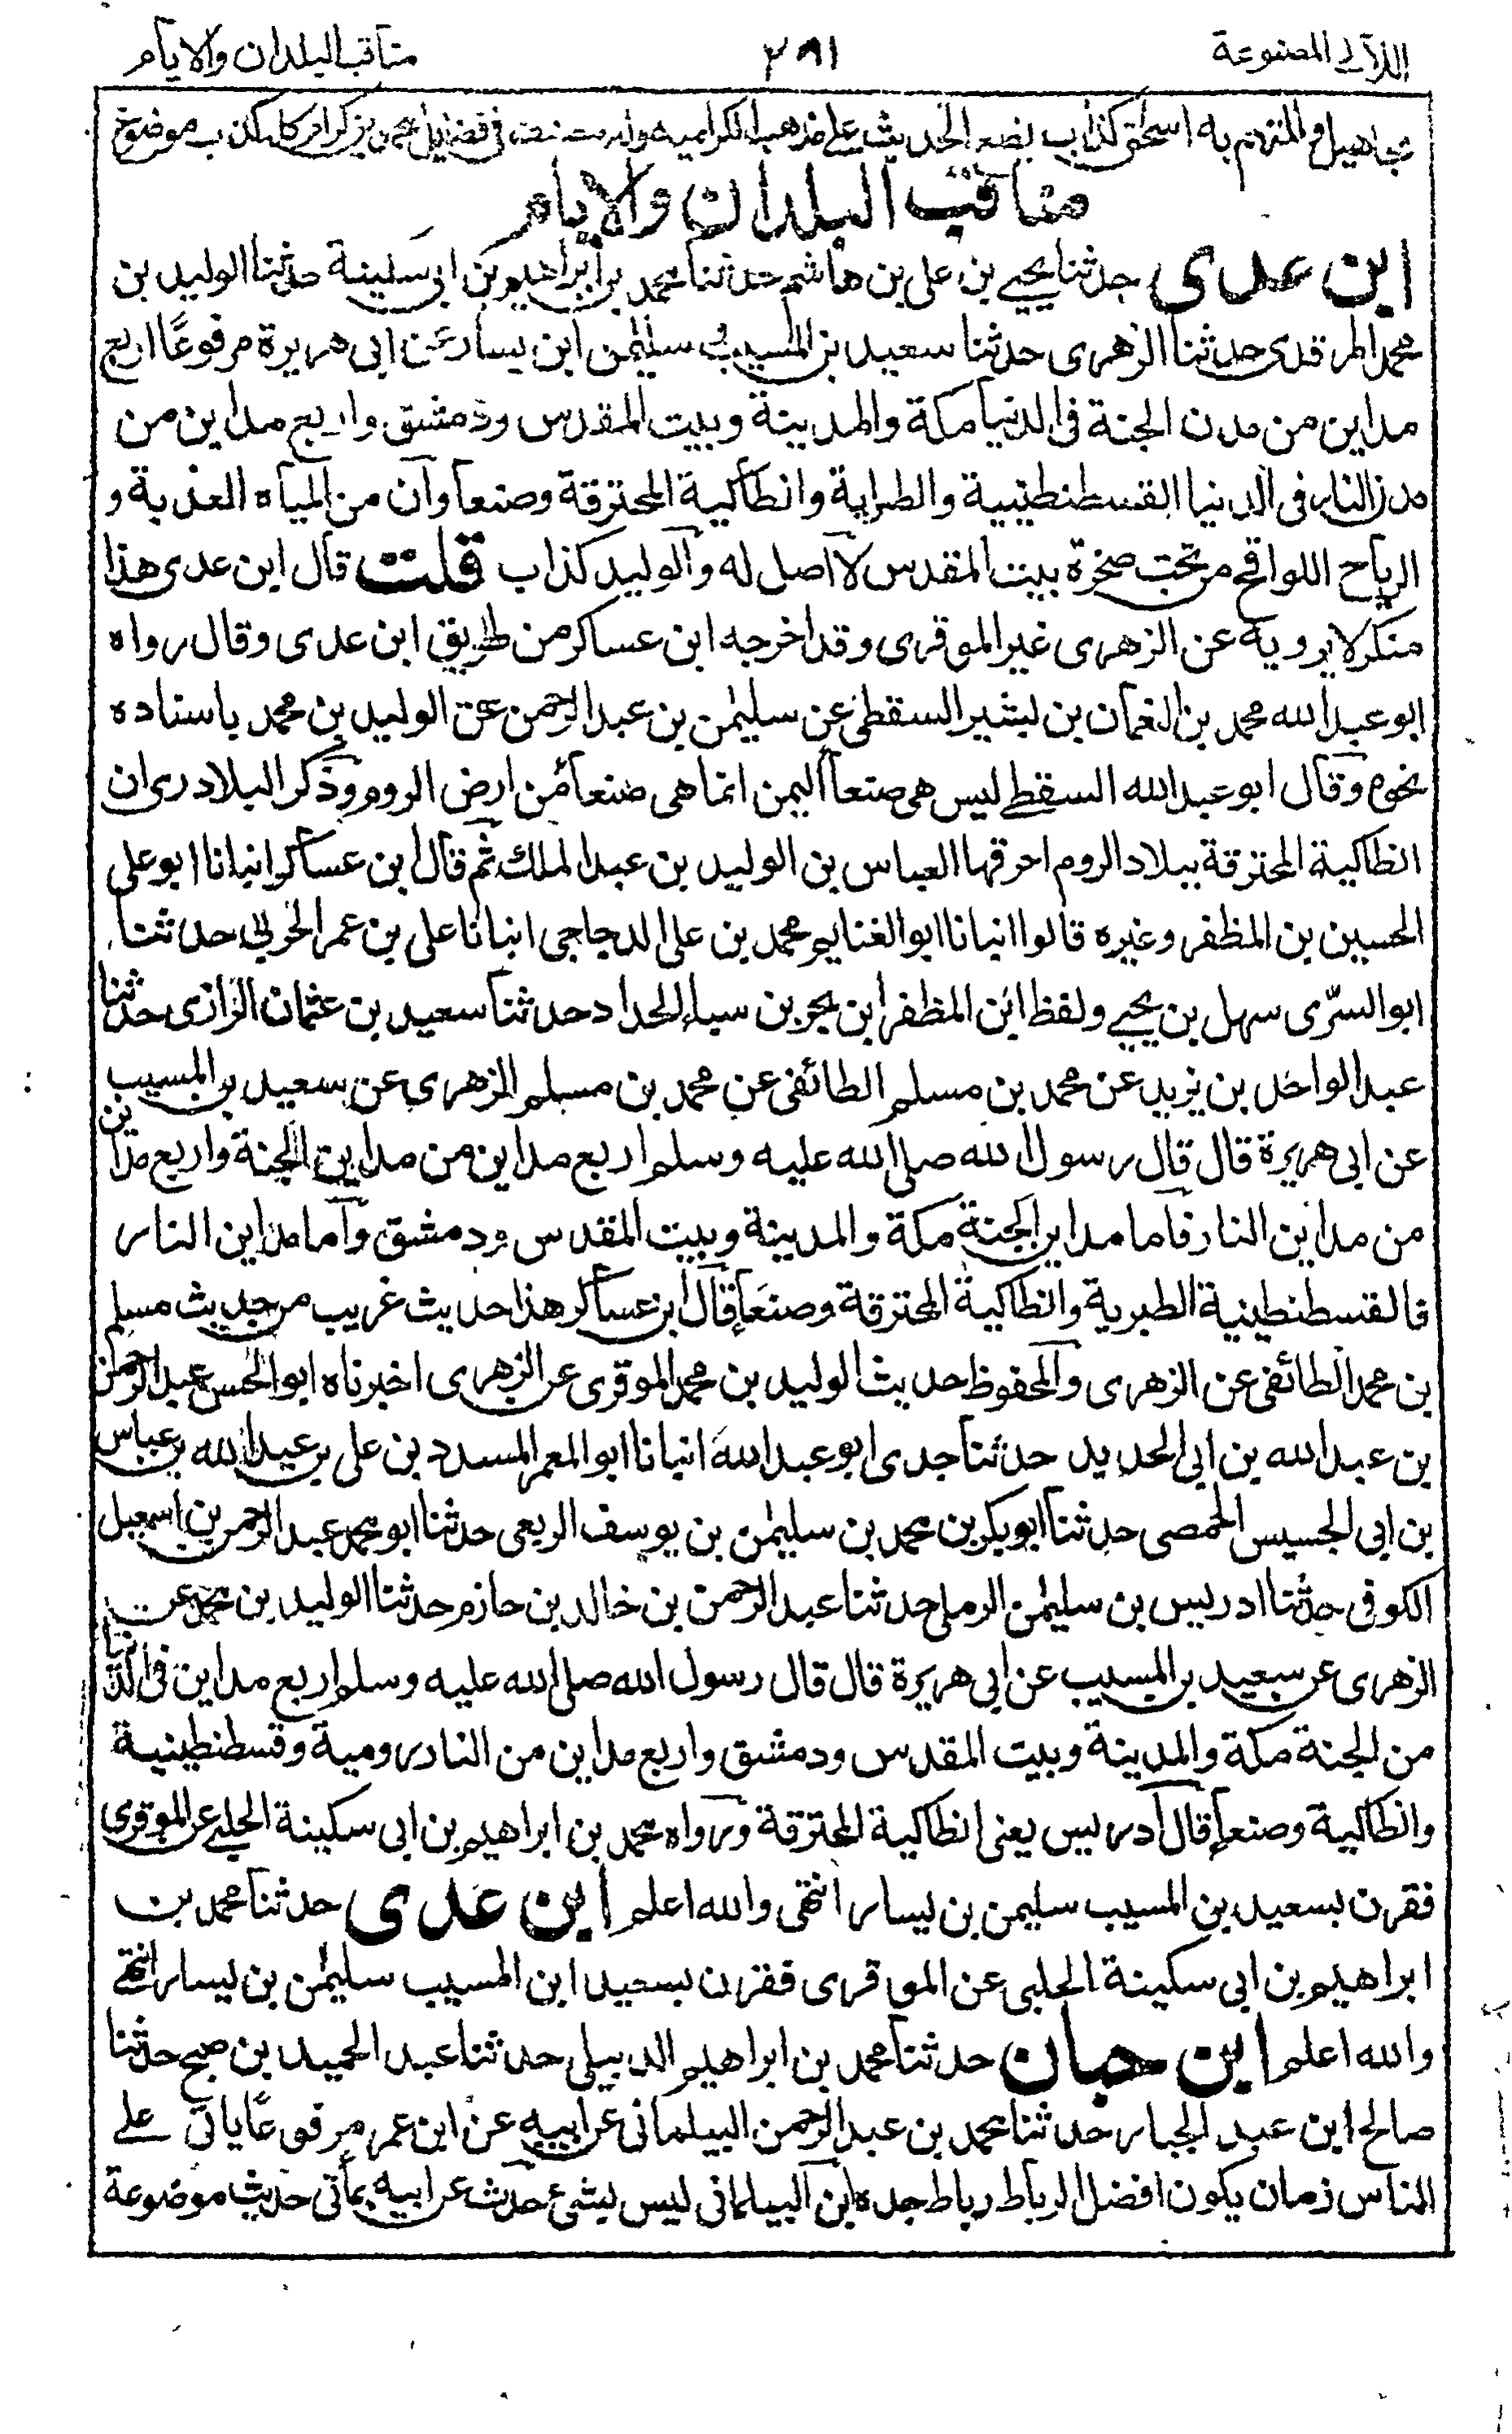 اللآلى المصنوعة
٢٨١
مناقب البلدان والايام
مجاهيل والمتهم به اسحق كذاب يضع الحديث على مذهب الكرامية وله مصنف فى فضائل محمد بن كرام كله كذب موضوع
مناقب البلدان والايام
ابن عدى حدثنا يحيى بن على بن هاشم حدثنا محمد بن ابراهيم بن ابى سكينة حدثنا الوليد بن
محمد الموقرى حدثنا الزهرى حدثنا سعيد بن المسيب و سليمن ابن يسار عن ابى هريرة مرفوعًا اربع
مداين من مدن الجنة فى الدنيا مكة والمدينة وبيت المقدس ودمشق واربع مداين من
مدن النار فى الدنيا القسطنطينية والطبراية وانطاكية المحترقة وصنعا وان من المياه العذبة و
الرياح اللواقح من تحت صخرة بيت المقدس لا اصل له والوليد كذاب قلت قال ابن عدى هذا
منكر لا يرويه عن الزهرى غير الموقرى وقد اخرجه ابن عساكر من طريق ابن عدى وقال رواه
ابو عبد الله محمد بن النعمان بن بشير السقطى عن سليمن بن عبد الرحمن عن الوليد بن محمد باسناده
نحوه وقال ابو عبد الله السقطى ليس هى صنعا اليمن انما هى صنعا من ارض الروم وذكر البلادرى ان
انطاكية المحترقة ببلاد الروم احرقها العباس بن الوليد بن عبد الملك ثم قال ابن عساكر انبانا ابو على
الحسين بن المظفر وغيره قالوا انبانا ابو الغنايم محمد بن على الدجاجى انبانا على بن عمر الحربى حدثنا
ابو السرّى سهل بن يحيى ولفظ ابن المظفر ابن بحر بن سبا الحداد حدثنا سعيد بن عثمان الرازى حدثنا
عبد الواحد بن يزيد عن محمد بن مسلم الطائفى عن محمد بن مسلم الزهرى عن سعيد بن المسيب
عن ابى هريرة قال قال رسول الله صلى الله عليه وسلم اربع مداين من مداين الجنة واربع مداين
من مداين النار فاما مداين الجنة مكة والمدينة وبيت المقدس ودمشق واما مداين النار
فالقسطنطينية الطبرية وانطاكية المحترقة وصنعا قال ابن عساكر هذا حديث غريب من حديث مسلم
بن محمد الطائفى عن الزهرى والمحفوظ حديث الوليد بن محمد الموقرى عن الزهرى اخبرناه ابو الحسن عبد الرحمن
بن عبد الله بن ابى الحديد حدثنا جدى ابو عبد الله انبانا ابو المعمر المسدد بن على بن عبد الله بن عباس
بن ابى الجسيس الحمصى حدثنا ابو بكر بن محمد بن سليمن بن يوسف الربعى حدثنا ابو محمد عبد الرحمن بن اسمعيل
الكوفى حدثنا ادريس بن سليمن الرملى حدثنا عبد الرحمن بن خالد بن حازم حدثنا الوليد بن محمد عن
الزهرى عن سعيد بن المسيب عن ابى هريرة قال قال رسول الله صلى الله عليه وسلم اربع مداين فى الدنيا
من الجنة مكة والمدينة وبيت المقدس ودمشق واربع مداين من النار رومية وقسطنطينية
وانطاكية وصنعا قال ادريس يعنى انطاكية المحترقة ورواه محمد بن ابراهيم بن ابى سكينة الحلبى عن الموقرى
فقرن بسعيد بن المسيب سليمن بن يسار انتهى والله اعلم ابن عدى حدثنا محمد بن
ابراهيم بن ابى سكينة الحلبى عن الموقرى فقرن بسعيد ابن المسيب سليمن بن يسار انتهى
والله اعلم ابن حبان حدثنا محمد بن ابراهيم الدبيلى حدثنا عبد الحميد بن صبح حدثنا
صالح ابن عبد الجبار حدثنا محمد بن عبد الرحمن البيلمانى عن ابيه عن ابن عمر مرفوعًا ياتى على
الناس زمان يكون افضل الرباط رباط جده ابن البيلمانى ليس بشئ حدث عن ابيه بمأتى حديث موضوعة